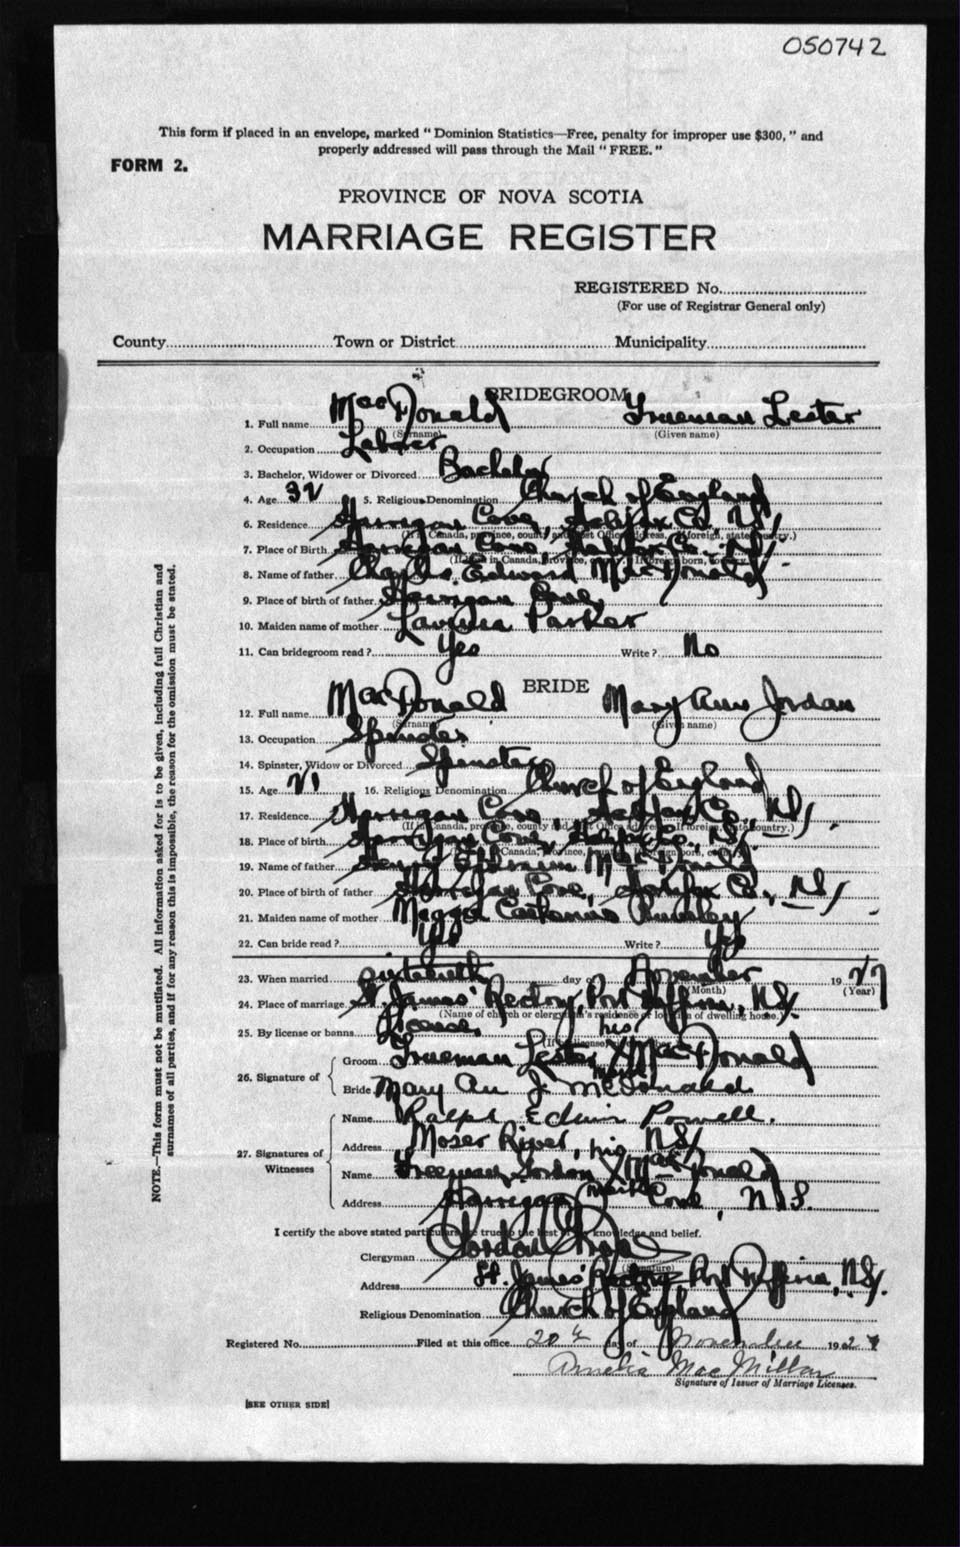 050742
This form if placed in an envelope, marked " Dominion Statistics—Free, penalty for improper use $300, " and
properly addressed will pass through the Mail " FREE. "
FORM 2.
PROVINCE OF NOVA SCOTIA
MARRIAGE REGISTER
REGISTERED No.
(For use of Registrar General only)
County Town or District Municipality
BRIDEGROOM
1. Full name MacDonald Trueman Lester
(Surname) (Given name)
2. Occupation Laborer
3. Bachelor, Widower or Divorced Bachelor
4. Age 32 5. Religious Denomination Church of England
6. Residence Harrigan Cove, Halifax Co., N.S.
(If in Canada, province, county and Post Office address. If foreign, state country.)
7. Place of Birth Harrigan Cove, Halifax Co., N.S.
(If born in Canada, province, county. If foreign born, country.)
8. Name of father Charles Edward MacDonald
9. Place of birth of father Harrigan Cove
10. Maiden name of mother Lavinia Parker
11. Can bridegroom read ? Yes Write ? No
BRIDE
12. Full name MacDonald Mary Ann Jordan
(Surname) (Given name)
13. Occupation Spinster
14. Spinster, Widow or Divorced Spinster
15. Age 21 16. Religious Denomination Church of England
17. Residence Harrigan Cove, Halifax Co., N.S.
(If in Canada, province, county and Post Office address. If foreign, state country.)
18. Place of birth Harrigan Cove, Halifax Co., N.S.
19. Name of father MacDonald
20. Place of birth of father Harrigan Cove, Halifax Co., N.S.
21. Maiden name of mother
22. Can bride read ? Yes Write ? Yes
23. When married sixteenth day of November 1927
(Month) (Year)
24. Place of marriage St. James' Rectory, Port Dufferin, N.S.
(Name of church or clergyman's residence or location of dwelling house.)
25. By license or banns License
his
26. Signature of Groom Trueman Lester X MacDonald
mark
Bride Mary Ann J McDonald
27. Signatures of Witnesses Name Ralph Edwin Powell.
Address Moser River, N.S.
his
Name Freeman Gordon X MacDonald
mark
Address Harrigan Cove, N.S.
I certify the above stated particulars are true to the best of my knowledge and belief.
Clergyman Gordon
(Signature)
Address St. James' Rectory, Port Dufferin, N.S.
Religious Denomination Church of England
Registered No. Filed at this office 20th day of November 1927
Amelia MacMillan
Signature of Issuer of Marriage Licenses.
[SEE OTHER SIDE]
NOTE.—This form must not be mutilated. All information asked for is to be given, including full Christian and
surnames of all parties, and if for any reason this is impossible, the reason for the omission must be stated.